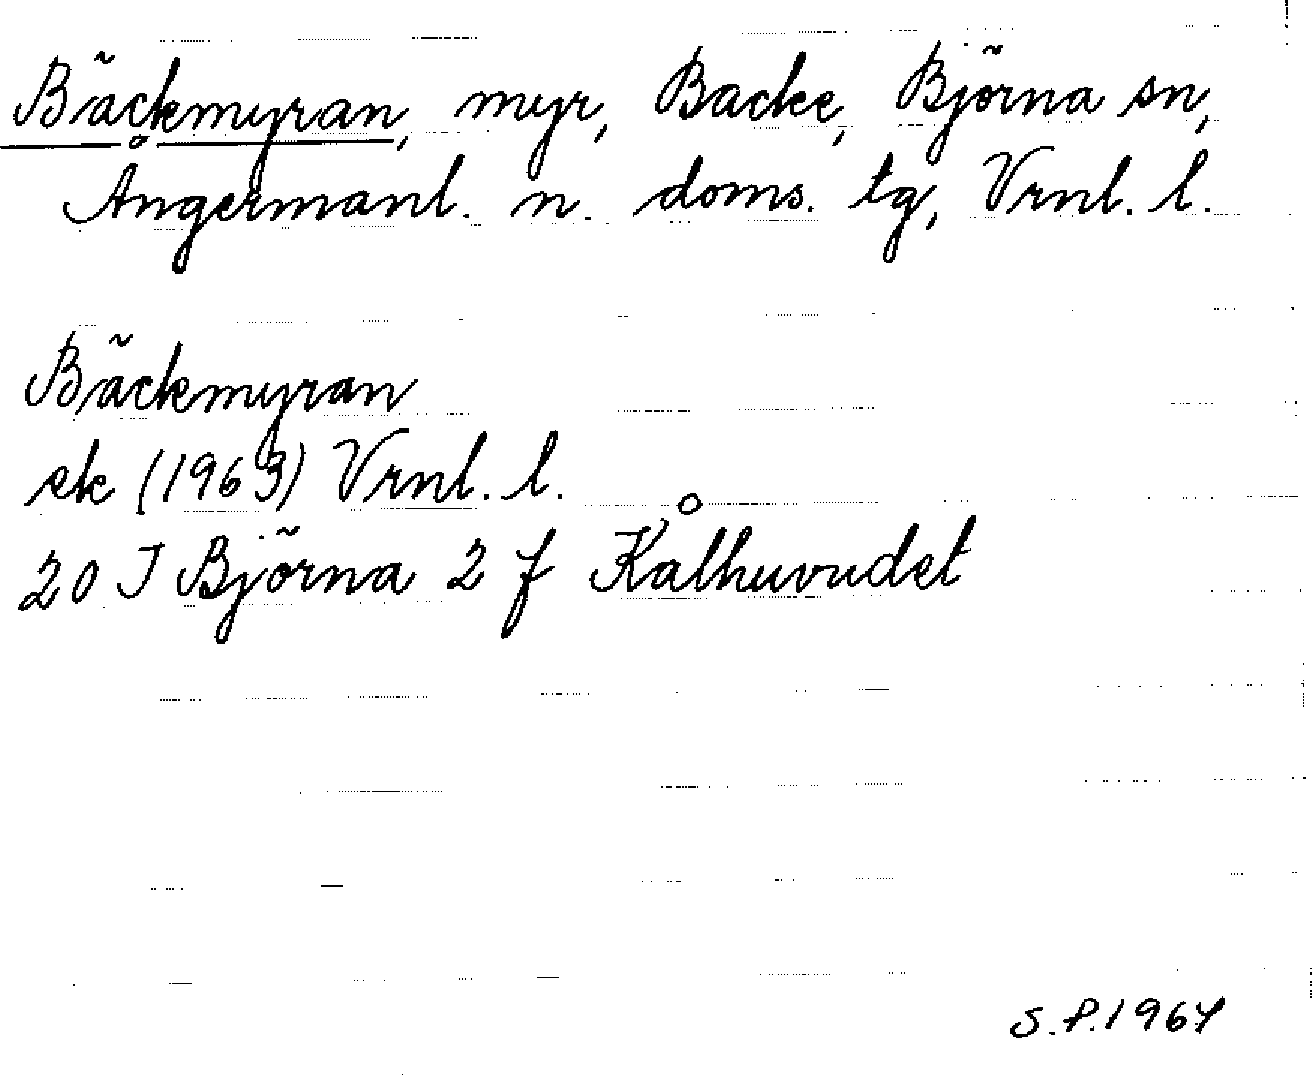 Bäckmyran, myr, Backe, Björna sn,
Ångermanl. n. doms. tg, Vrnl. l.
Bäckmyran
ek (1963) Vrnl. l.
20 I Björna 2 f Kålhuvudet
S.P. 1964